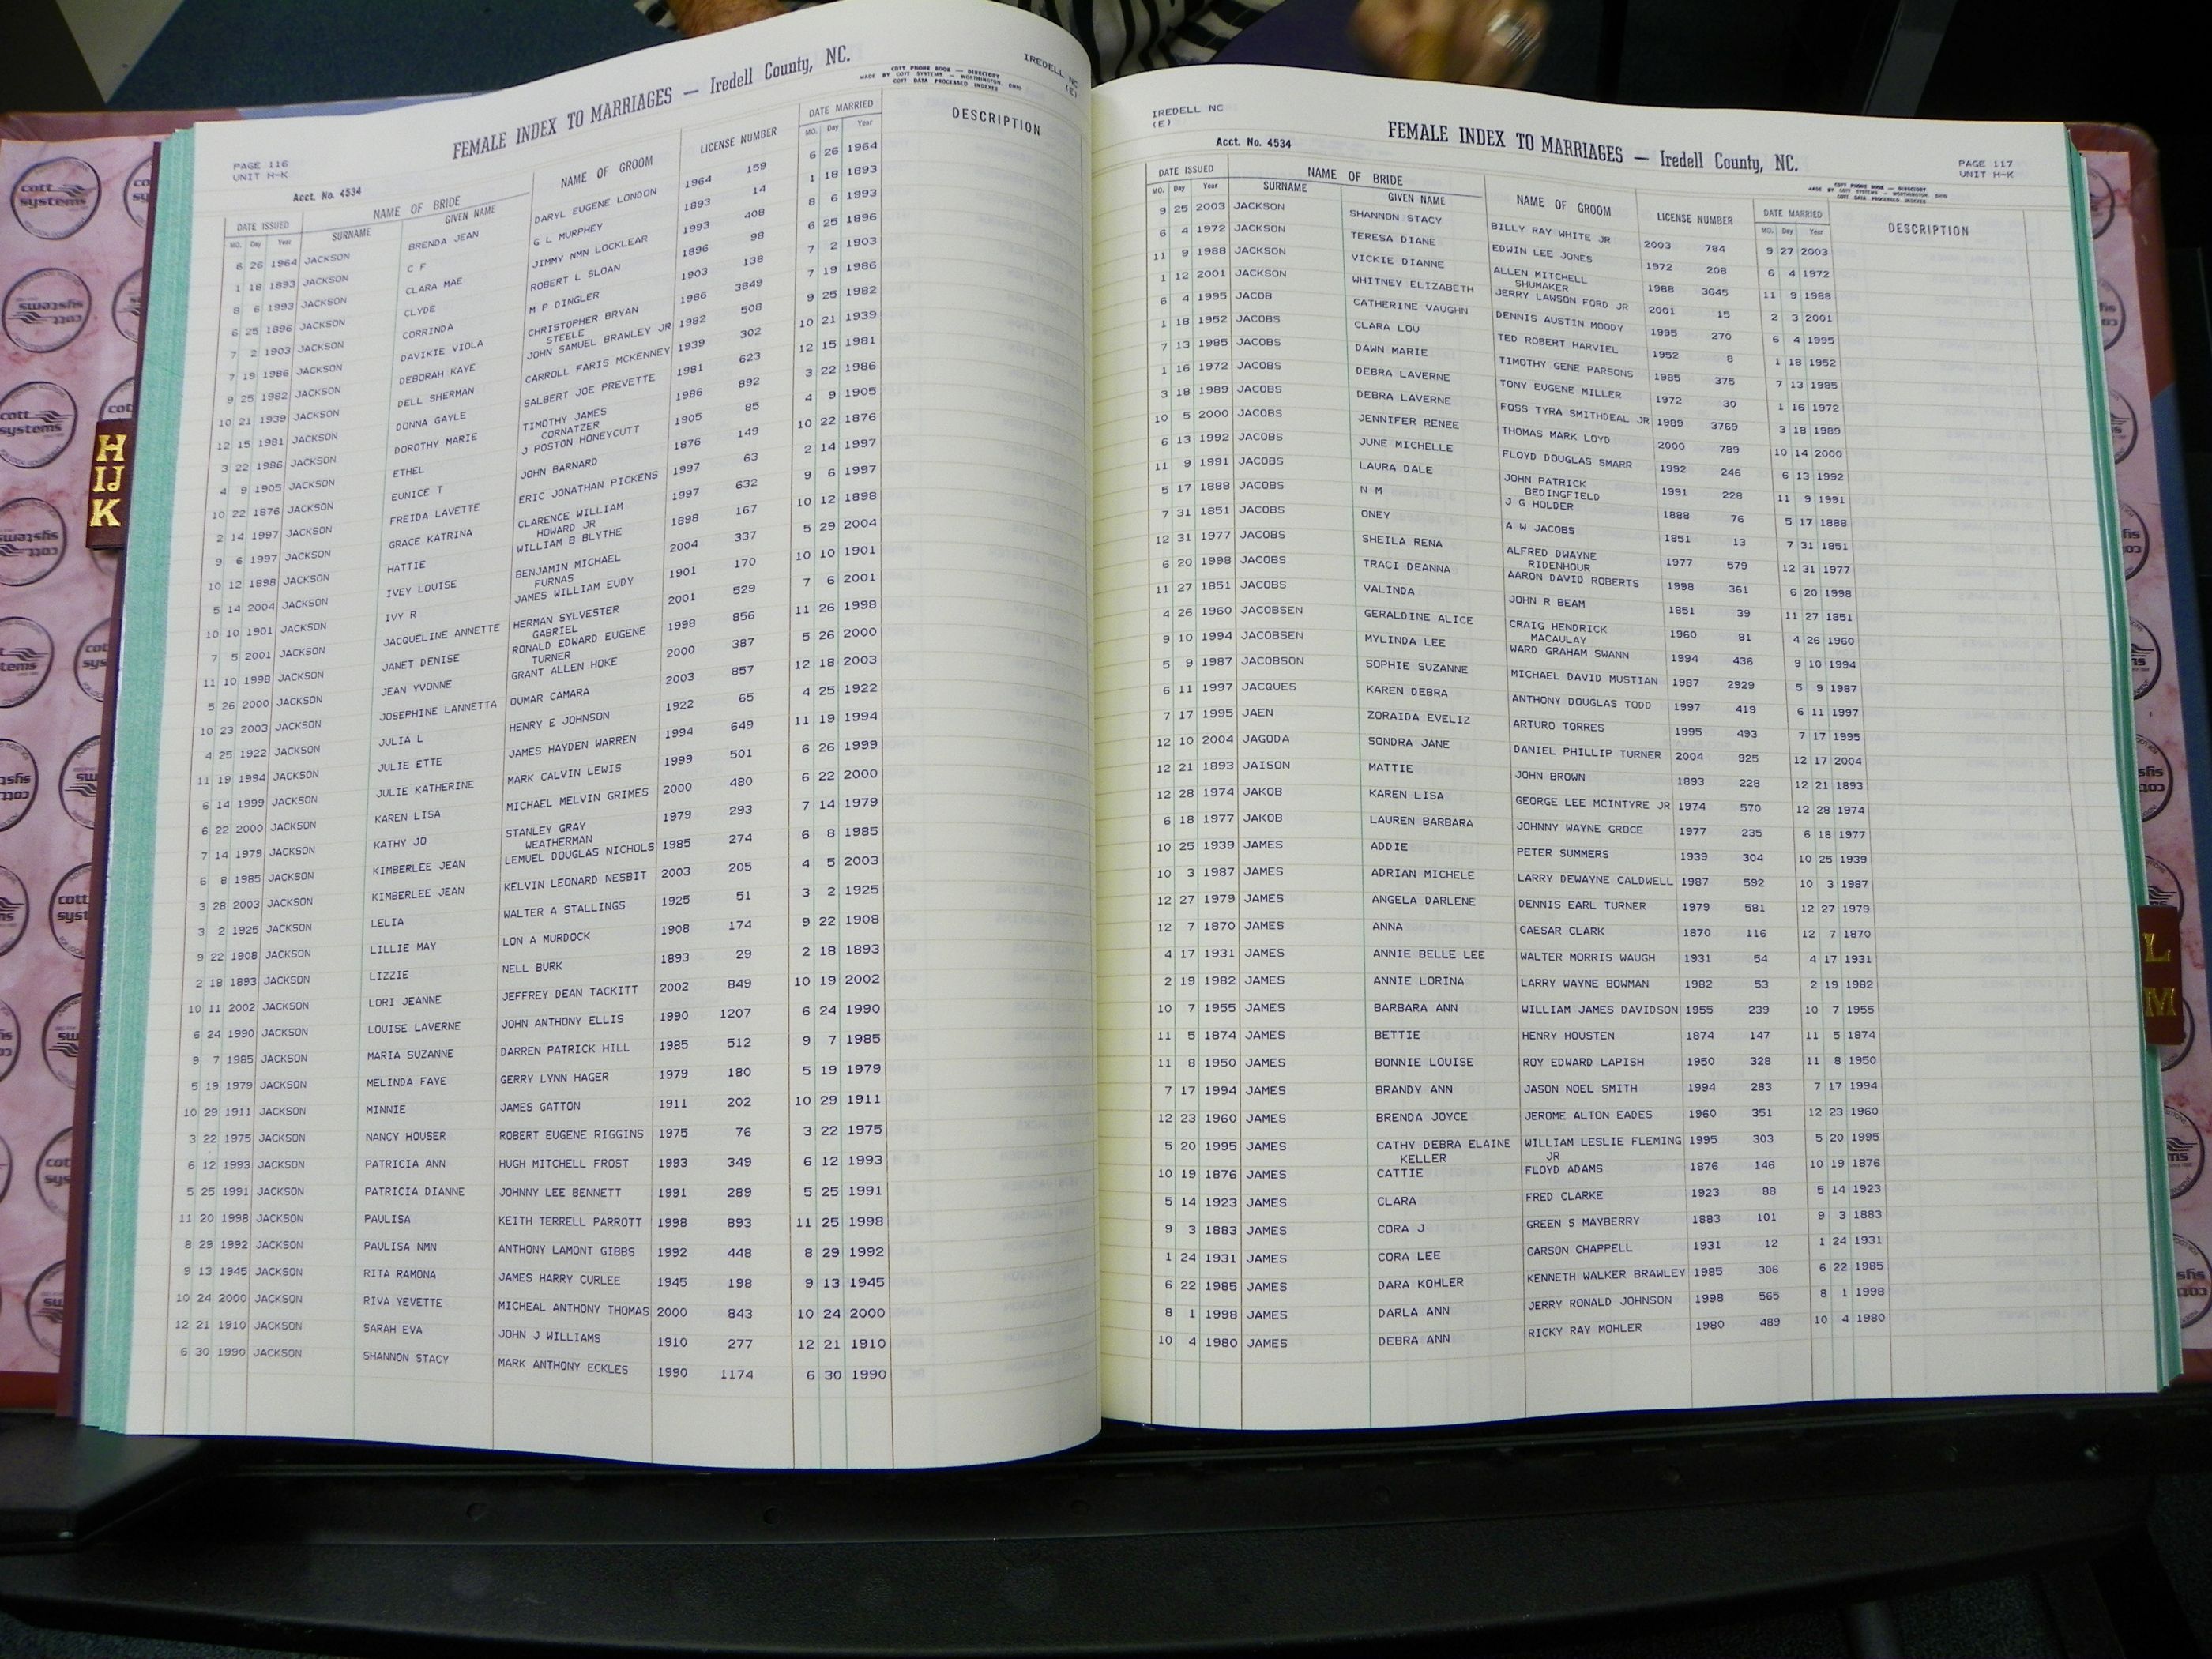 IREDELL NC
(E)
FEMALE INDEX TO MARRIAGES — Iredell County, NC.
COTT PHONE BOOK — DIRECTORY
MADE BY COTT SYSTEMS — WORTHINGTON, OHIO
COTT DATA PROCESSED INDEXES
PAGE 116
UNIT H-K
Acct. No. 4534
DATE ISSUED NAME OF BRIDE NAME OF GROOM LICENSE NUMBER DATE MARRIED DESCRIPTION
MO. Day Year SURNAME GIVEN NAME MO. Day Year
6 26 1964 JACKSON BRENDA JEAN DARYL EUGENE LONDON 1964 159 6 26 1964
1 18 1893 JACKSON C F G L MURPHEY 1893 14 1 18 1893
8 6 1993 JACKSON CLARA MAE JIMMY NMN LOCKLEAR 1993 408 8 6 1993
6 25 1896 JACKSON CLYDE ROBERT L SLOAN 1896 98 6 25 1896
7 2 1903 JACKSON CORRINDA M P DINGLER 1903 138 7 2 1903
7 19 1986 JACKSON DAVIKIE VIOLA CHRISTOPHER BRYAN 1986 3849 7 19 1986
STEELE
9 25 1982 JACKSON DEBORAH KAYE JOHN SAMUEL BRAWLEY JR 1982 508 9 25 1982
10 21 1939 JACKSON DELL SHERMAN CARROLL FARIS MCKENNEY 1939 302 10 21 1939
12 15 1981 JACKSON DONNA GAYLE SALBERT JOE PREVETTE 1981 623 12 15 1981
3 22 1986 JACKSON DOROTHY MARIE TIMOTHY JAMES 1986 892 3 22 1986
CORNATZER
4 9 1905 JACKSON ETHEL J POSTON HONEYCUTT 1905 85 4 9 1905
10 22 1876 JACKSON EUNICE T JOHN BARNARD 1876 149 10 22 1876
2 14 1997 JACKSON FREIDA LAVETTE ERIC JONATHAN PICKENS 1997 63 2 14 1997
9 6 1997 JACKSON GRACE KATRINA CLARENCE WILLIAM 1997 632 9 6 1997
HOWARD JR
10 12 1898 JACKSON HATTIE WILLIAM B BLYTHE 1898 167 10 12 1898
5 14 2004 JACKSON IVEY LOUISE BENJAMIN MICHAEL 2004 337 5 29 2004
FURNAS
10 10 1901 JACKSON IVY R JAMES WILLIAM EUDY 1901 170 10 10 1901
7 5 2001 JACKSON JACQUELINE ANNETTE HERMAN SYLVESTER 2001 529 7 6 2001
GABRIEL
11 10 1998 JACKSON JANET DENISE RONALD EDWARD EUGENE 1998 856 11 26 1998
TURNER
5 26 2000 JACKSON JEAN YVONNE GRANT ALLEN HOKE 2000 387 5 26 2000
10 23 2003 JACKSON JOSEPHINE LANNETTA OUMAR CAMARA 2003 857 12 18 2003
4 25 1922 JACKSON JULIA L HENRY E JOHNSON 1922 65 4 25 1922
11 19 1994 JACKSON JULIE ETTE JAMES HAYDEN WARREN 1994 649 11 19 1994
6 14 1999 JACKSON JULIE KATHERINE MARK CALVIN LEWIS 1999 501 6 26 1999
6 22 2000 JACKSON KAREN LISA MICHAEL MELVIN GRIMES 2000 480 6 22 2000
7 14 1979 JACKSON KATHY JO STANLEY GRAY 1979 293 7 14 1979
WEATHERMAN
6 8 1985 JACKSON KIMBERLEE JEAN LEMUEL DOUGLAS NICHOLS 1985 274 6 8 1985
3 28 2003 JACKSON KIMBERLEE JEAN KELVIN LEONARD NESBIT 2003 205 4 5 2003
3 2 1925 JACKSON LELIA WALTER A STALLINGS 1925 51 3 2 1925
9 22 1908 JACKSON LILLIE MAY LON A MURDOCK 1908 174 9 22 1908
2 18 1893 JACKSON LIZZIE NELL BURK 1893 29 2 18 1893
10 11 2002 JACKSON LORI JEANNE JEFFREY DEAN TACKITT 2002 849 10 19 2002
6 24 1990 JACKSON LOUISE LAVERNE JOHN ANTHONY ELLIS 1990 1207 6 24 1990
9 7 1985 JACKSON MARIA SUZANNE DARREN PATRICK HILL 1985 512 9 7 1985
5 19 1979 JACKSON MELINDA FAYE GERRY LYNN HAGER 1979 180 5 19 1979
10 29 1911 JACKSON MINNIE JAMES GATTON 1911 202 10 29 1911
3 22 1975 JACKSON NANCY HOUSER ROBERT EUGENE RIGGINS 1975 76 3 22 1975
6 12 1993 JACKSON PATRICIA ANN HUGH MITCHELL FROST 1993 349 6 12 1993
5 25 1991 JACKSON PATRICIA DIANNE JOHNNY LEE BENNETT 1991 289 5 25 1991
11 20 1998 JACKSON PAULISA KEITH TERRELL PARROTT 1998 893 11 25 1998
8 29 1992 JACKSON PAULISA NMN ANTHONY LAMONT GIBBS 1992 448 8 29 1992
9 13 1945 JACKSON RITA RAMONA JAMES HARRY CURLEE 1945 198 9 13 1945
10 24 2000 JACKSON RIVA YEVETTE MICHEAL ANTHONY THOMAS 2000 843 10 24 2000
12 21 1910 JACKSON SARAH EVA JOHN J WILLIAMS 1910 277 12 21 1910
6 30 1990 JACKSON SHANNON STACY MARK ANTHONY ECKLES 1990 1174 6 30 1990
IREDELL NC
(E)
Acct. No. 4534
FEMALE INDEX TO MARRIAGES — Iredell County, NC.
PAGE 117
UNIT H-K
COTT PHONE BOOK — DIRECTORY
MADE BY COTT SYSTEMS — WORTHINGTON, OHIO
COTT DATA PROCESSED INDEXES
DATE ISSUED NAME OF BRIDE NAME OF GROOM LICENSE NUMBER DATE MARRIED DESCRIPTION
MO. Day Year SURNAME GIVEN NAME MO. Day Year
9 25 2003 JACKSON SHANNON STACY BILLY RAY WHITE JR 2003 784 9 27 2003
6 4 1972 JACKSON TERESA DIANE EDWIN LEE JONES 1972 208 6 4 1972
11 9 1988 JACKSON VICKIE DIANNE ALLEN MITCHELL 1988 3645 11 9 1988
SHUMAKER
1 12 2001 JACKSON WHITNEY ELIZABETH JERRY LAWSON FORD JR 2001 15 2 3 2001
6 4 1995 JACOB CATHERINE VAUGHN DENNIS AUSTIN MOODY 1995 270 6 4 1995
1 18 1952 JACOBS CLARA LOU TED ROBERT HARVIEL 1952 8 1 18 1952
7 13 1985 JACOBS DAWN MARIE TIMOTHY GENE PARSONS 1985 375 7 13 1985
1 16 1972 JACOBS DEBRA LAVERNE TONY EUGENE MILLER 1972 30 1 16 1972
3 18 1989 JACOBS DEBRA LAVERNE FOSS TYRA SMITHDEAL JR 1989 3769 3 18 1989
10 5 2000 JACOBS JENNIFER RENEE THOMAS MARK LOYD 2000 789 10 14 2000
6 13 1992 JACOBS JUNE MICHELLE FLOYD DOUGLAS SMARR 1992 246 6 13 1992
11 9 1991 JACOBS LAURA DALE JOHN PATRICK 1991 228 11 9 1991
BEDINGFIELD
5 17 1888 JACOBS N M J G HOLDER 1888 76 5 17 1888
7 31 1851 JACOBS ONEY A W JACOBS 1851 13 7 31 1851
12 31 1977 JACOBS SHEILA RENA ALFRED DWAYNE 1977 579 12 31 1977
RIDENHOUR
6 20 1998 JACOBS TRACI DEANNA AARON DAVID ROBERTS 1998 361 6 20 1998
11 27 1851 JACOBS VALINDA JOHN R BEAM 1851 39 11 27 1851
4 26 1960 JACOBSEN GERALDINE ALICE CRAIG HENDRICK 1960 81 4 26 1960
MACAULAY
9 10 1994 JACOBSEN MYLINDA LEE WARD GRAHAM SWANN 1994 436 9 10 1994
5 9 1987 JACOBSON SOPHIE SUZANNE MICHAEL DAVID MUSTIAN 1987 2929 5 9 1987
6 11 1997 JACQUES KAREN DEBRA ANTHONY DOUGLAS TODD 1997 419 6 11 1997
7 17 1995 JAEN ZORAIDA EVELIZ ARTURO TORRES 1995 493 7 17 1995
12 10 2004 JAGODA SONDRA JANE DANIEL PHILLIP TURNER 2004 925 12 17 2004
12 21 1893 JAISON MATTIE JOHN BROWN 1893 228 12 21 1893
12 28 1974 JAKOB KAREN LISA GEORGE LEE MCINTYRE JR 1974 570 12 28 1974
6 18 1977 JAKOB LAUREN BARBARA JOHNNY WAYNE GROCE 1977 235 6 18 1977
10 25 1939 JAMES ADDIE PETER SUMMERS 1939 304 10 25 1939
10 3 1987 JAMES ADRIAN MICHELE LARRY DEWAYNE CALDWELL 1987 592 10 3 1987
12 27 1979 JAMES ANGELA DARLENE DENNIS EARL TURNER 1979 581 12 27 1979
12 7 1870 JAMES ANNA CAESAR CLARK 1870 116 12 7 1870
4 17 1931 JAMES ANNIE BELLE LEE WALTER MORRIS WAUGH 1931 54 4 17 1931
2 19 1982 JAMES ANNIE LORINA LARRY WAYNE BOWMAN 1982 53 2 19 1982
10 7 1955 JAMES BARBARA ANN WILLIAM JAMES DAVIDSON 1955 239 10 7 1955
11 5 1874 JAMES BETTIE HENRY HOUSTEN 1874 147 11 5 1874
11 8 1950 JAMES BONNIE LOUISE ROY EDWARD LAPISH 1950 328 11 8 1950
7 17 1994 JAMES BRANDY ANN JASON NOEL SMITH 1994 283 7 17 1994
12 23 1960 JAMES BRENDA JOYCE JEROME ALTON EADES 1960 351 12 23 1960
5 20 1995 JAMES CATHY DEBRA ELAINE WILLIAM LESLIE FLEMING 1995 303 5 20 1995
KELLER JR
10 19 1876 JAMES CATTIE FLOYD ADAMS 1876 146 10 19 1876
5 14 1923 JAMES CLARA FRED CLARKE 1923 88 5 14 1923
9 3 1883 JAMES CORA J GREEN S MAYBERRY 1883 101 9 3 1883
1 24 1931 JAMES CORA LEE CARSON CHAPPELL 1931 12 1 24 1931
6 22 1985 JAMES DARA KOHLER KENNETH WALKER BRAWLEY 1985 306 6 22 1985
8 1 1998 JAMES DARLA ANN JERRY RONALD JOHNSON 1998 565 8 1 1998
10 4 1980 JAMES DEBRA ANN RICKY RAY MOHLER 1980 489 10 4 1980
H
IJ
K
L
M
cott
systems